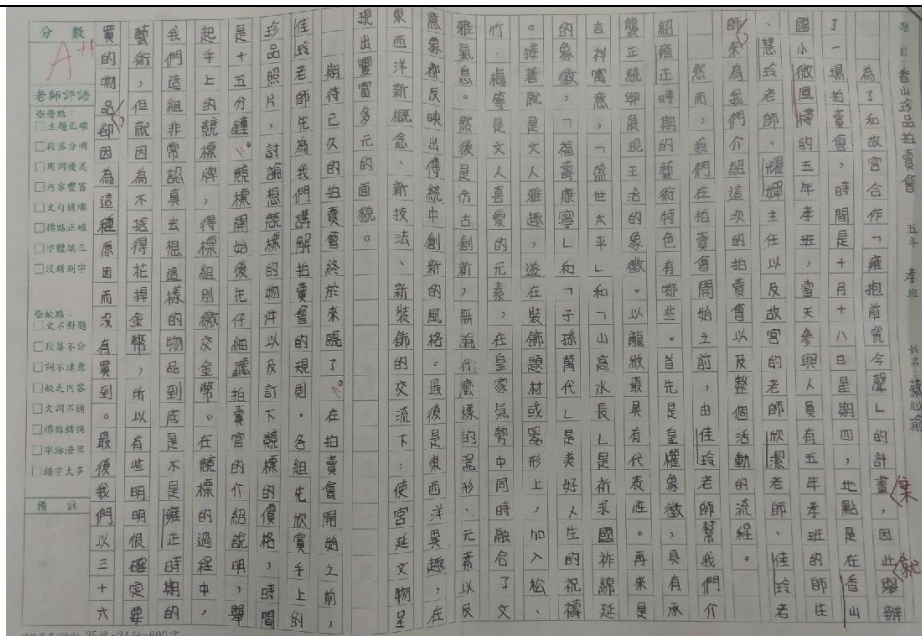 題目：香山珍品拍賣會 五年 孝班 姓名：
為了和故宮合作「雍抱前瓷今聲」的計畫，因此舉辦
了一場拍賣會，時間是十月十八日星期四，地點是在香山
國小微風樓的五年孝班，當天參與人員有五年孝班的師生
、慧玲老師、耀嬋主任以及故宮的老師欣潔老師、佳玲老
師來為我們介紹這次的拍賣會以及整個活動的流程。
然而，我們在拍賣會開始之前，由佳玲老師幫我們介
紹雍正時期的藝術特色有哪些。首先是皇權象徵，具有承
襲正統與展現王治的象徵。以龍紋最具有代表性。再來是
吉祥寓意，「盛世太平」和「山高水長」是祈求國祚綿延
的象徵，「福壽康寧」和「子孫萬代」是美好人生的祝禱
。接著就是文人雅趣，遊在裝飾題材或器形上，加入松、
竹、梅等是文人喜愛的元素，在皇家氣勢中同時融合了文
雅氣息。然後是仿古創新，無論什麼樣的器形、元素以及
意象都反映出傳統中創新的風格。最後是東西洋異趣，在
東西洋新概念、新技法、新裝飾的交流下：使宮廷文物呈
現出豐富多元的面貌。
期待已久的拍賣會終於來臨了。在拍賣會開始之前，
佳玲老師先為我們講解拍賣會的規則。各組先欣賞手上的
珍品照片，討論想競標的物件以及訂下競標的價格，時間
是十五分鐘。競標開始後先仔細聽拍賣官的介紹說明，舉
起手上的競標牌，得標組別繳交金幣。在競標的過程中，
我們這組非常認真去想這樣的物品到底是不是雍正時期的
藝術，但就因為認不捨得花掉金幣，所以有些明明很確定要
買的物品卻因為這種原因而沒有買到。最後我們以三十六
分數
A++
老師評語
※優點：
□主題正確
□段落分明
□用詞優美
□內容豐富
□文句順暢
□標點正確
□字體端正
□沒錯別字
※缺點：
□文不對題
□段落不分
□詞不達意
□缺乏內容
□文詞不通
□標點錯誤
□字跡潦草
□錯字太多
備註